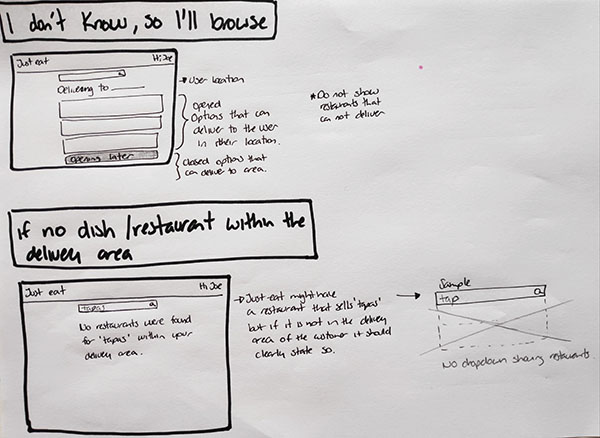 I don't know, so I'll browse
Just eat
Hi Joe
Delivering to
Opening later
User location
Opened
Options that can
deliver to the user
in their location.
closed options that
can deliver to area.
*Do not show
restaurants that
can not deliver
if no dish/restaurant within the
delivery area
Just eat
Hi Joe
tapas
No restaurants were found
for 'tapas' within your
delivery area.
Just eat might have
a restaurant that sells 'tapas'
but if it is not in the delivery
area of the customer it should
clearly state so.
Sample
tap
No dropdown showing restaurants.